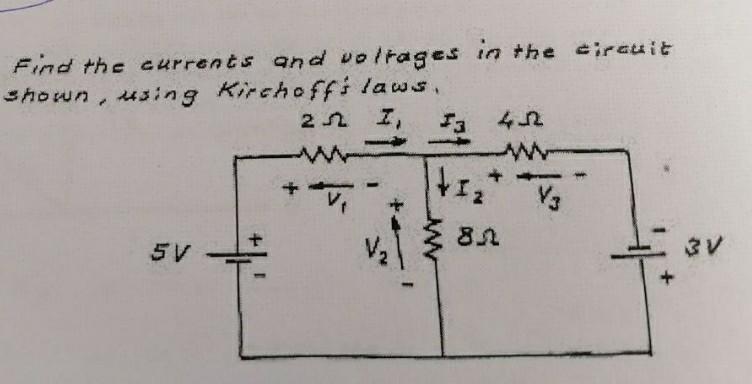 Find the currents and voltages in the circuit
shown, using Kirchoff's laws.
2 Ω I₁ I₃ 4 Ω
+ V₁ - I₂ + V₃ -
5V + - + V₂ - 8Ω - 3V +